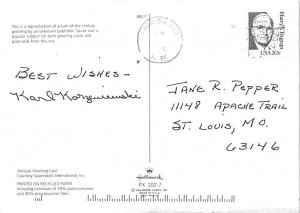 This is a reproduction of a turn of the century
greeting by an unknown publisher. Santa was a
popular subject for both greeting cards and
postcards from this era.
Harry S. Truman
USA 20c
BEST WISHES-
Karl Korzeniewski
JANE R. PEPPER
11148 APACHE TRAIL
ST. LOUIS, MO.
63146
Antique Greeting Card
Courtesy Superstock International, Inc.
PRINTED ON RECYCLED PAPER
including minimum of 10% postconsumer
and 40% preconsumer fiber.
Hallmark
PX 102-7
© HALLMARK CARDS, INC.
MADE IN U.S.A.